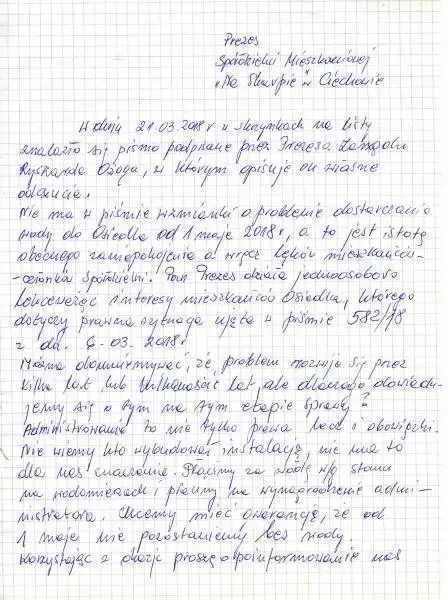 Prezes
Spółdzielni Mieszkaniowej
"Na Skarpie" w Ciechowie
W dniu 21.03.2018 r w skrzynkach na listy
znalazło się pismo podpisane przez Prezesa Zarządu
Ryszarda Ożoga, w którym opisuje on własne
odczucia.
Nie ma w piśmie wzmianki o problemie dostarczania
wody do Osiedla od 1 maja 2018 r, a to jest istotą
obecnego zaniepokojenia a wręcz lęków mieszkańców-
-członków Spółdzielni. Pan Prezes działa jednoosobowo
lekceważąc interesy mieszkańców Osiedla, którego
dotyczy prawna sytuacja ujęta w piśmie 582/18
z dn. 6-03. 2018 r
Można domniemywać, że problem rozwija się przez
kilka lat lub kilkanaście lat, ale dlaczego dowiadu-
jemy się o tym na tym etapie sprawy?
Administrowanie to nie tylko prawa lecz i obowiązki.
Nie wiemy kto wybudował instalację, nie ma to
dla nas znaczenia. Płacimy za wodę w/g stanu
na wodomierzach i płacimy na wynagrodzenie admi-
nistratora. Chcemy mieć gwarancję, że od
1 maja nie pozostaniemy bez wody.
Korzystając z okazji proszę o poinformowanie nas